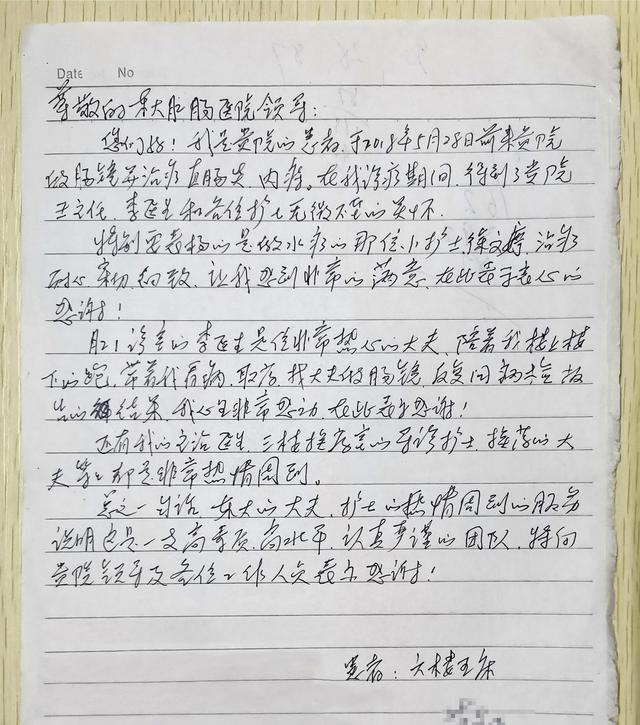 Date No
尊敬的东大肛肠医院领导:
您们好!我是贵院的患者,于2018年5月28日前来贵院
做肠镜并治疗直肠炎、内痔。在我诊疗期间,得到了贵院
王主任、李医生和各位护士无微不至的关怀。
特别要表扬的是做水疗的那位小护士徐文婷,治疗
耐心、亲切、细致,让我感到非常的满意,在此表示衷心的
感谢!
门诊的李医生是位非常热心的大夫,陪着我楼上楼
下的跑,带着我看病、取药、找大夫做肠镜、反复问病检报
告的结果,我心里非常感动,在此表示感谢!
还有我的主治医生、三楼换药室的导诊护士、换药的大
夫等等都是非常热情周到。
总之一句话,东大的大夫、护士的热情周到的服务
说明这是一支高素质、高水平、认真严谨的团队,特向
贵院领导及各位工作人员表示感谢!
患者:六楼五床